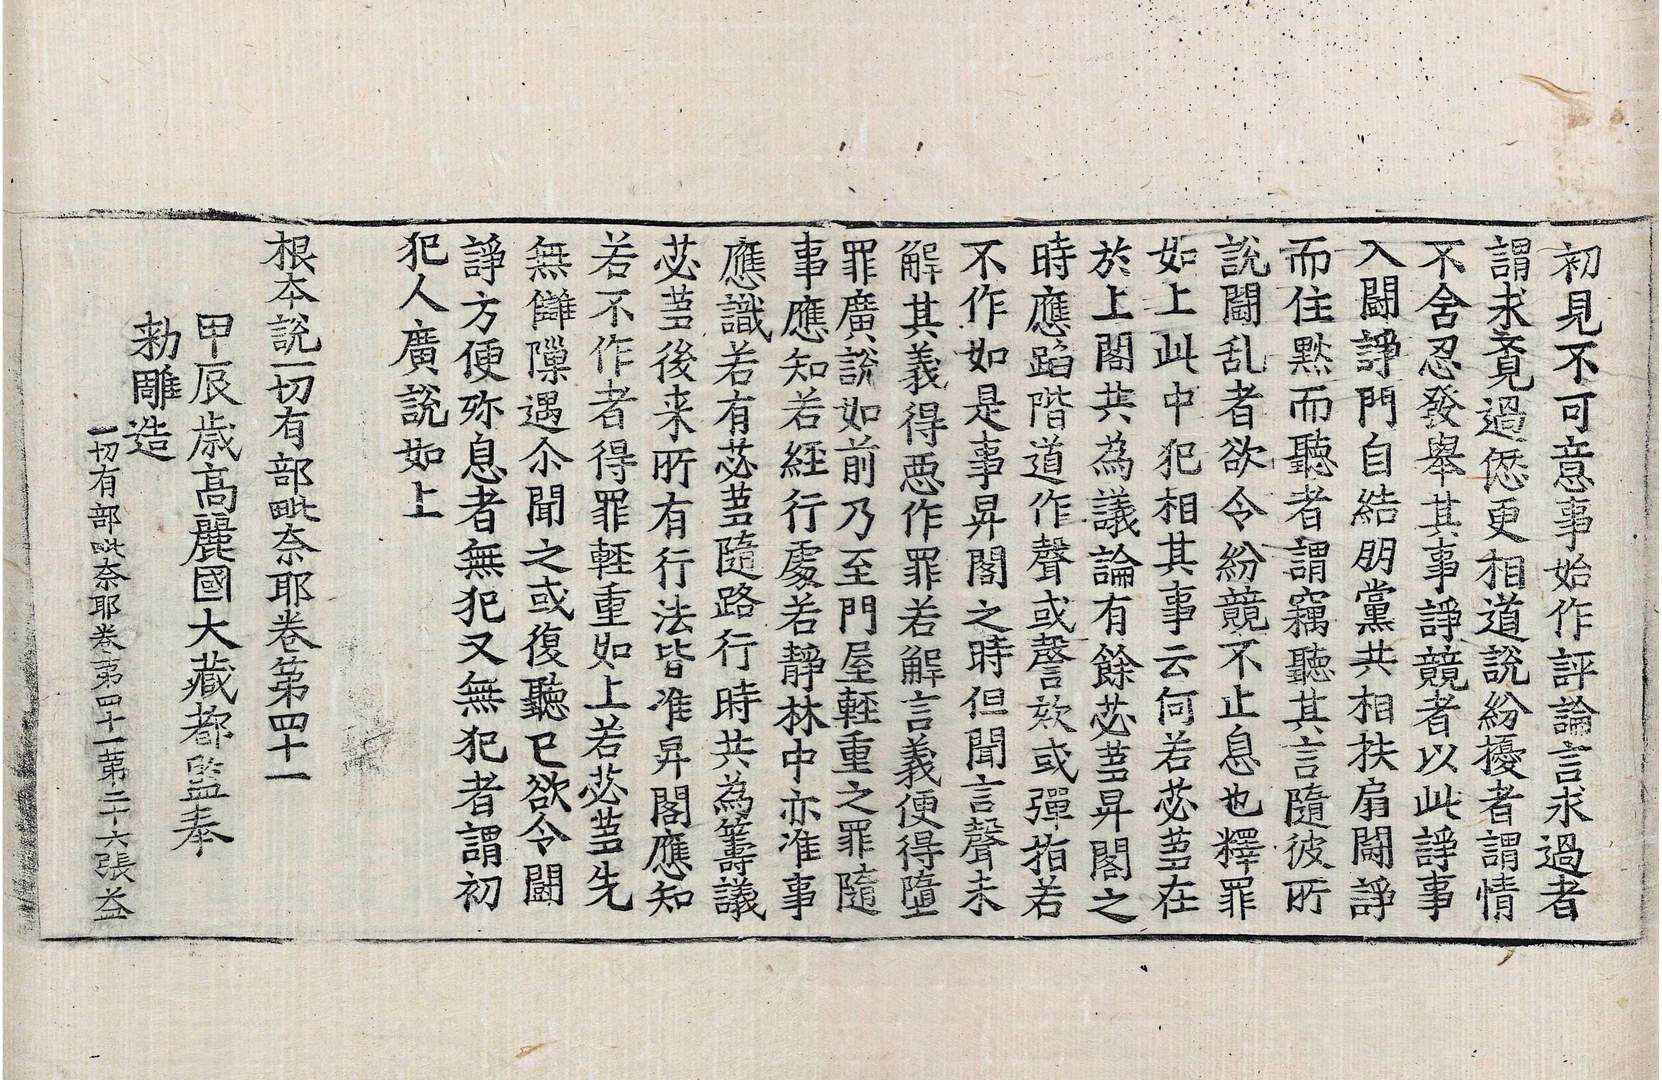 初見不可意事始作評論言求過者
謂求覔過愆更相道說紛擾者謂情
不舍忍發舉其事諍競者以此諍事
入鬪諍門自結朋黨共相扶扇鬪諍
而住默而聽者謂竊聽其言隨彼所
說鬪乱者欲令紛競不止息也釋罪
如上此中犯相其事云何若苾芻在
於上閣共為議論有餘苾芻昇閣之
時應蹈階道作聲或謦欬或彈指若
不作如是事昇閣之時但聞言聲未
解其義得惡作罪若解言義便得墮
罪廣說如前乃至門屋輕重之罪隨
事應知若經行處若靜林中亦准事
應識若有苾芻隨路行時共為籌議
苾芻後来所有行法皆准昇閣應知
若不作者得罪輕重如上若苾芻先
無讎隟遇尒聞之或復聽已欲令鬪
諍方便弥息者無犯又無犯者謂初
犯人廣說如上
根本說一切有部毗奈耶卷第四十一
甲辰歲高麗國大藏都監奉
勅雕造
一切有部毗奈耶卷第四十一第二十六張益